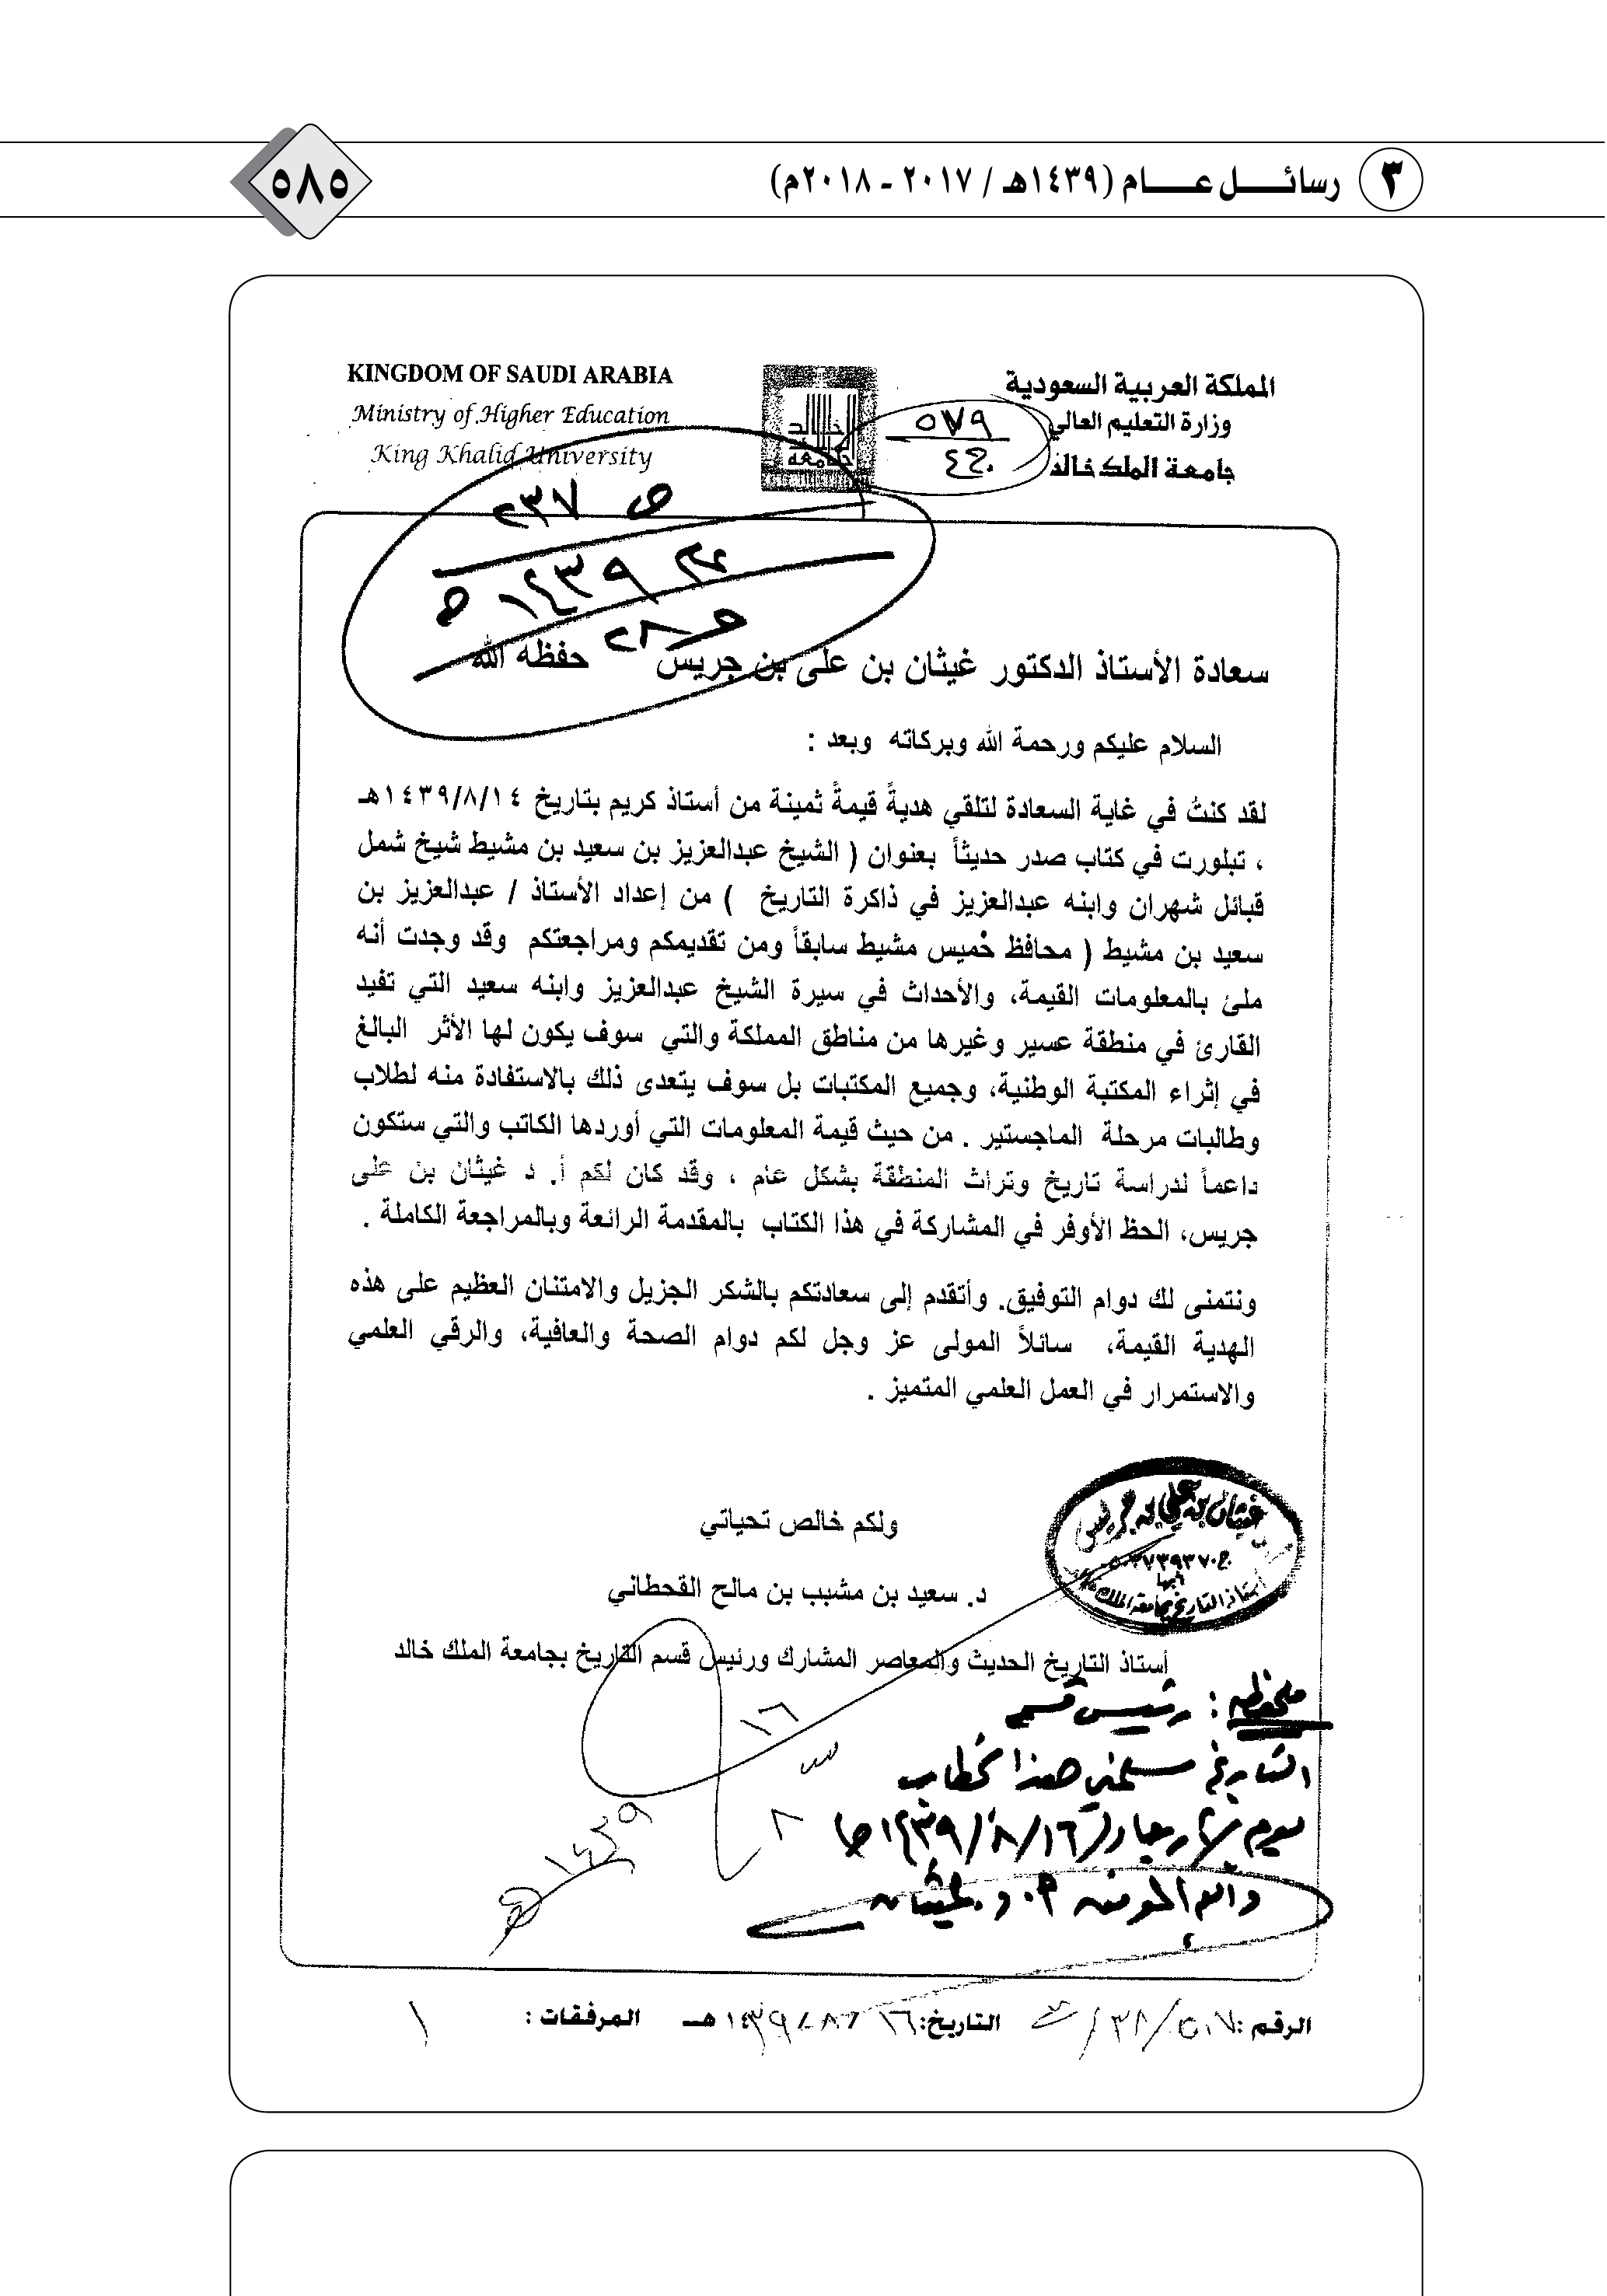 ٣ رسائـــل عــــام (١٤٣٩هـ / ٢٠١٧ - ٢٠١٨م)
٥٨٥
المملكة العربية السعودية
وزارة التعليم العالي
جامعة الملك خالد
٥٧٩
KINGDOM OF SAUDI ARABIA
Ministry of Higher Education
King Khalid University
جامعة الملك خالد
ص ٢٣٧
١٤٣٩
سعادة الأستاذ الدكتور غيثان بن على بن جريس حفظه الله
السلام عليكم ورحمة الله وبركاته وبعد :
لقد كنتُ في غاية السعادة لتلقي هديةً قيمةً ثمينة من أستاذ كريم بتاريخ ١٤٣٩/٨/١٤هـ
، تبلورت في كتاب صدر حديثاً بعنوان ( الشيخ عبدالعزيز بن سعيد بن مشيط شيخ شمل
قبائل شهران وابنه عبدالعزيز في ذاكرة التاريخ ) من إعداد الأستاذ / عبدالعزيز بن
سعيد بن مشيط ( محافظ خُميس مشيط سابقاً ومن تقديمكم ومراجعتكم وقد وجدت أنه
ملئ بالمعلومات القيمة، والأحداث في سيرة الشيخ عبدالعزيز وابنه سعيد التي تفيد
القارئ في منطقة عسير وغيرها من مناطق المملكة والتي سوف يكون لها الأثر البالغ
في إثراء المكتبة الوطنية، وجميع المكتبات بل سوف يتعدى ذلك بالاستفادة منه لطلاب
وطالبات مرحلة الماجستير . من حيث قيمة المعلومات التي أوردها الكاتب والتي ستكون
داعماً لدراسة تاريخ وتراث المنطقة بشكل عام ، وقد كان لكم أ. د غيثان بن على
جريس، الحظ الأوفر في المشاركة في هذا الكتاب بالمقدمة الرائعة وبالمراجعة الكاملة .
ونتمنى لك دوام التوفيق. وأتقدم إلى سعادتكم بالشكر الجزيل والامتنان العظيم على هذه
الهدية القيمة، سائلاً المولى عز وجل لكم دوام الصحة والعافية، والرقي العلمي
والاستمرار في العمل العلمي المتميز .
ولكم خالص تحياتي
غيثان بن علي بن جريس
أبها
أستاذ التاريخ بجامعة الملك خالد
د. سعيد بن مشبب بن مالح القحطاني
أستاذ التاريخ الحديث والمعاصر المشارك ورئيس قسم التاريخ بجامعة الملك خالد
ملحوظة : رئيس قسم
التاريخ سلمني هذا الخطاب
يوم (١٤٣٩/٨/١٦هـ)
والله الموفق أ.د. غيثان
١٦
٨
١٤٣٩هـ
الرقم : التاريخ: ١٦ / ٨ / ١٤٣٩هـ المرفقات : ١